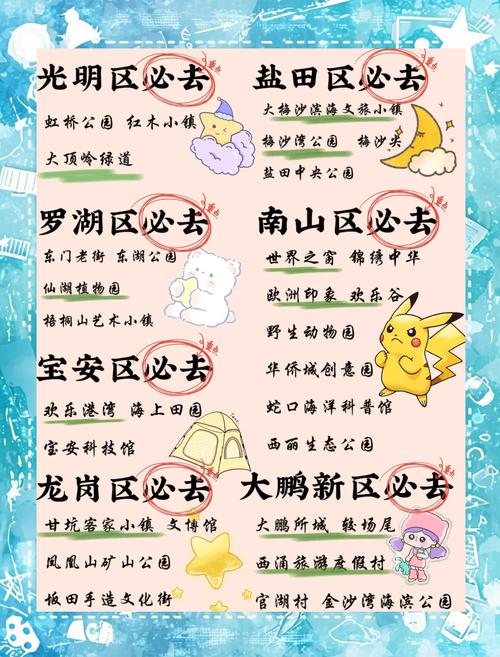 光明区必去
重点
虹桥公园 红木小镇
大顶岭绿道
盐田区必去
重点
大梅沙滨海文旅小镇
梅沙湾公园 梅沙尖
盐田中央公园
罗湖区必去
重点
东门老街 东湖公园
仙湖植物园
梧桐山艺术小镇
南山区必去
重点
世界之窗 锦绣中华
欧洲印象 欢乐谷
野生动物园
华侨城创意园
蛇口海洋科普馆
西丽生态公园
宝安区必去
重点
欢乐港湾 海上田园
宝安科技馆
龙岗区必去
重点
甘坑客家小镇 文博馆
凤凰山矿山公园
坂田手造文化街
大鹏新区必去
重点
大鹏所城 较场尾
西涌旅游度假村
官湖村 金沙湾海滨公园